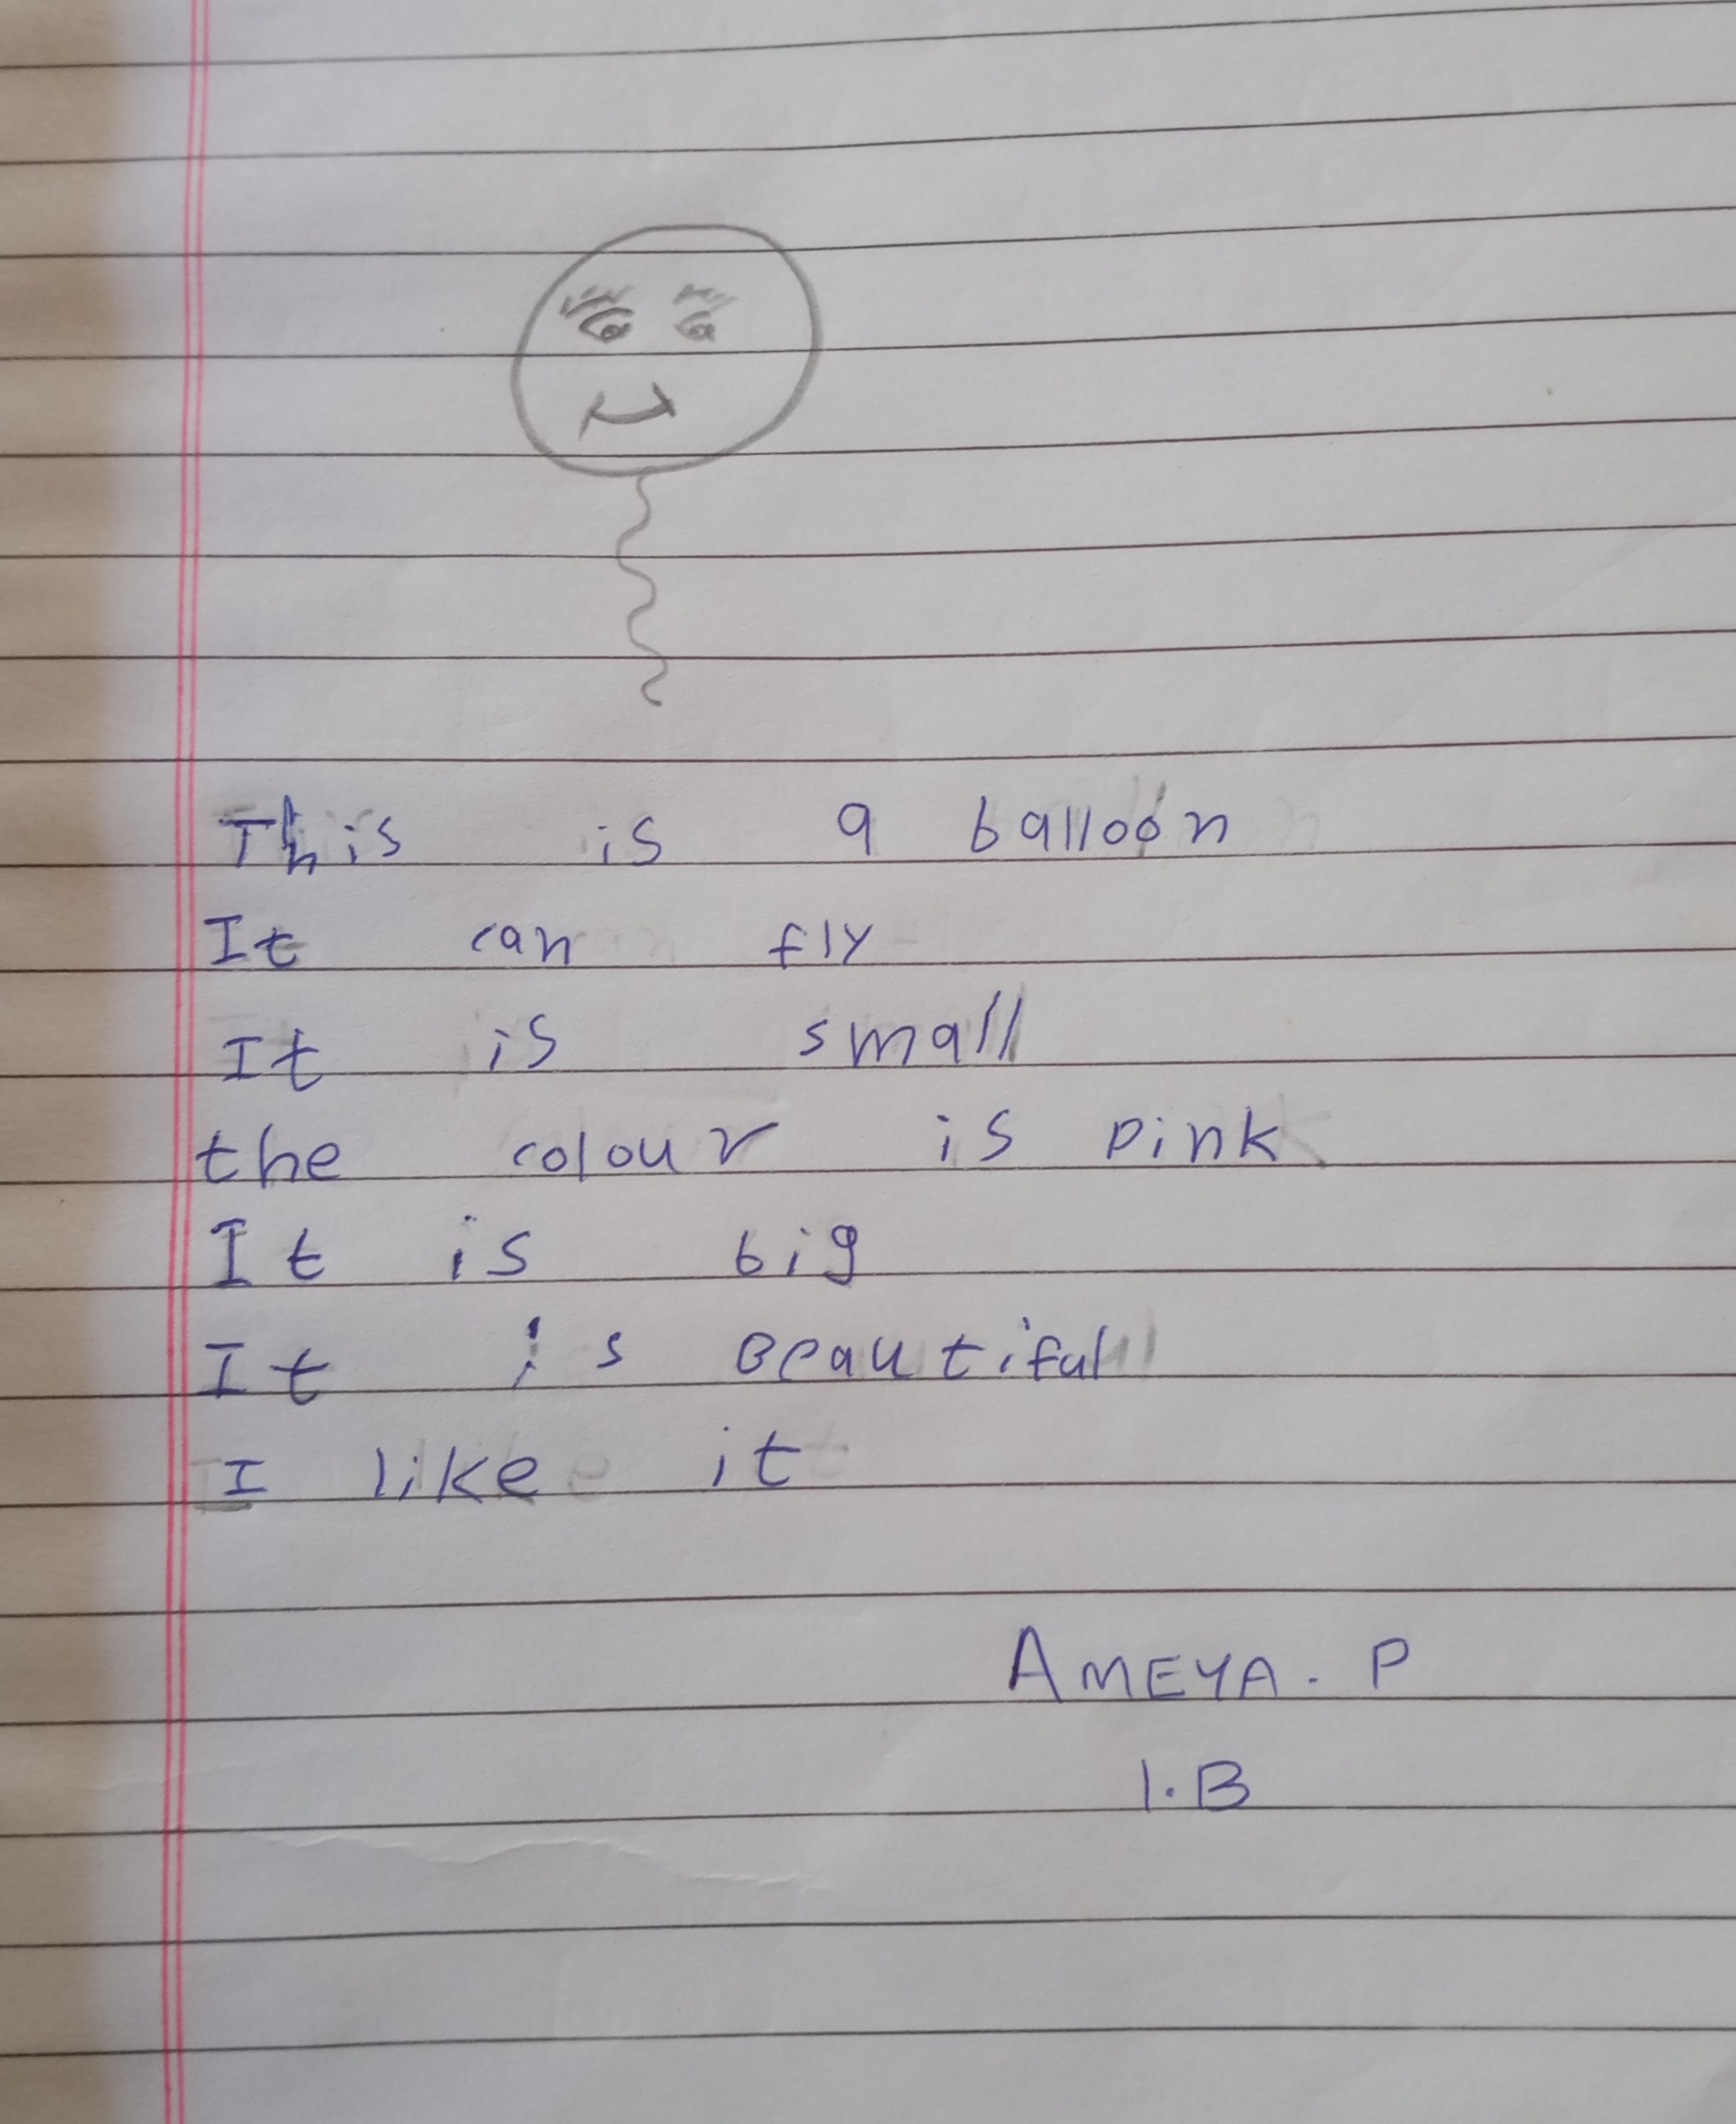 This is a balloon
It can fly
It is small
the colour is pink
It is big
It is Beautiful
I like it
AMEYA. P
1.B